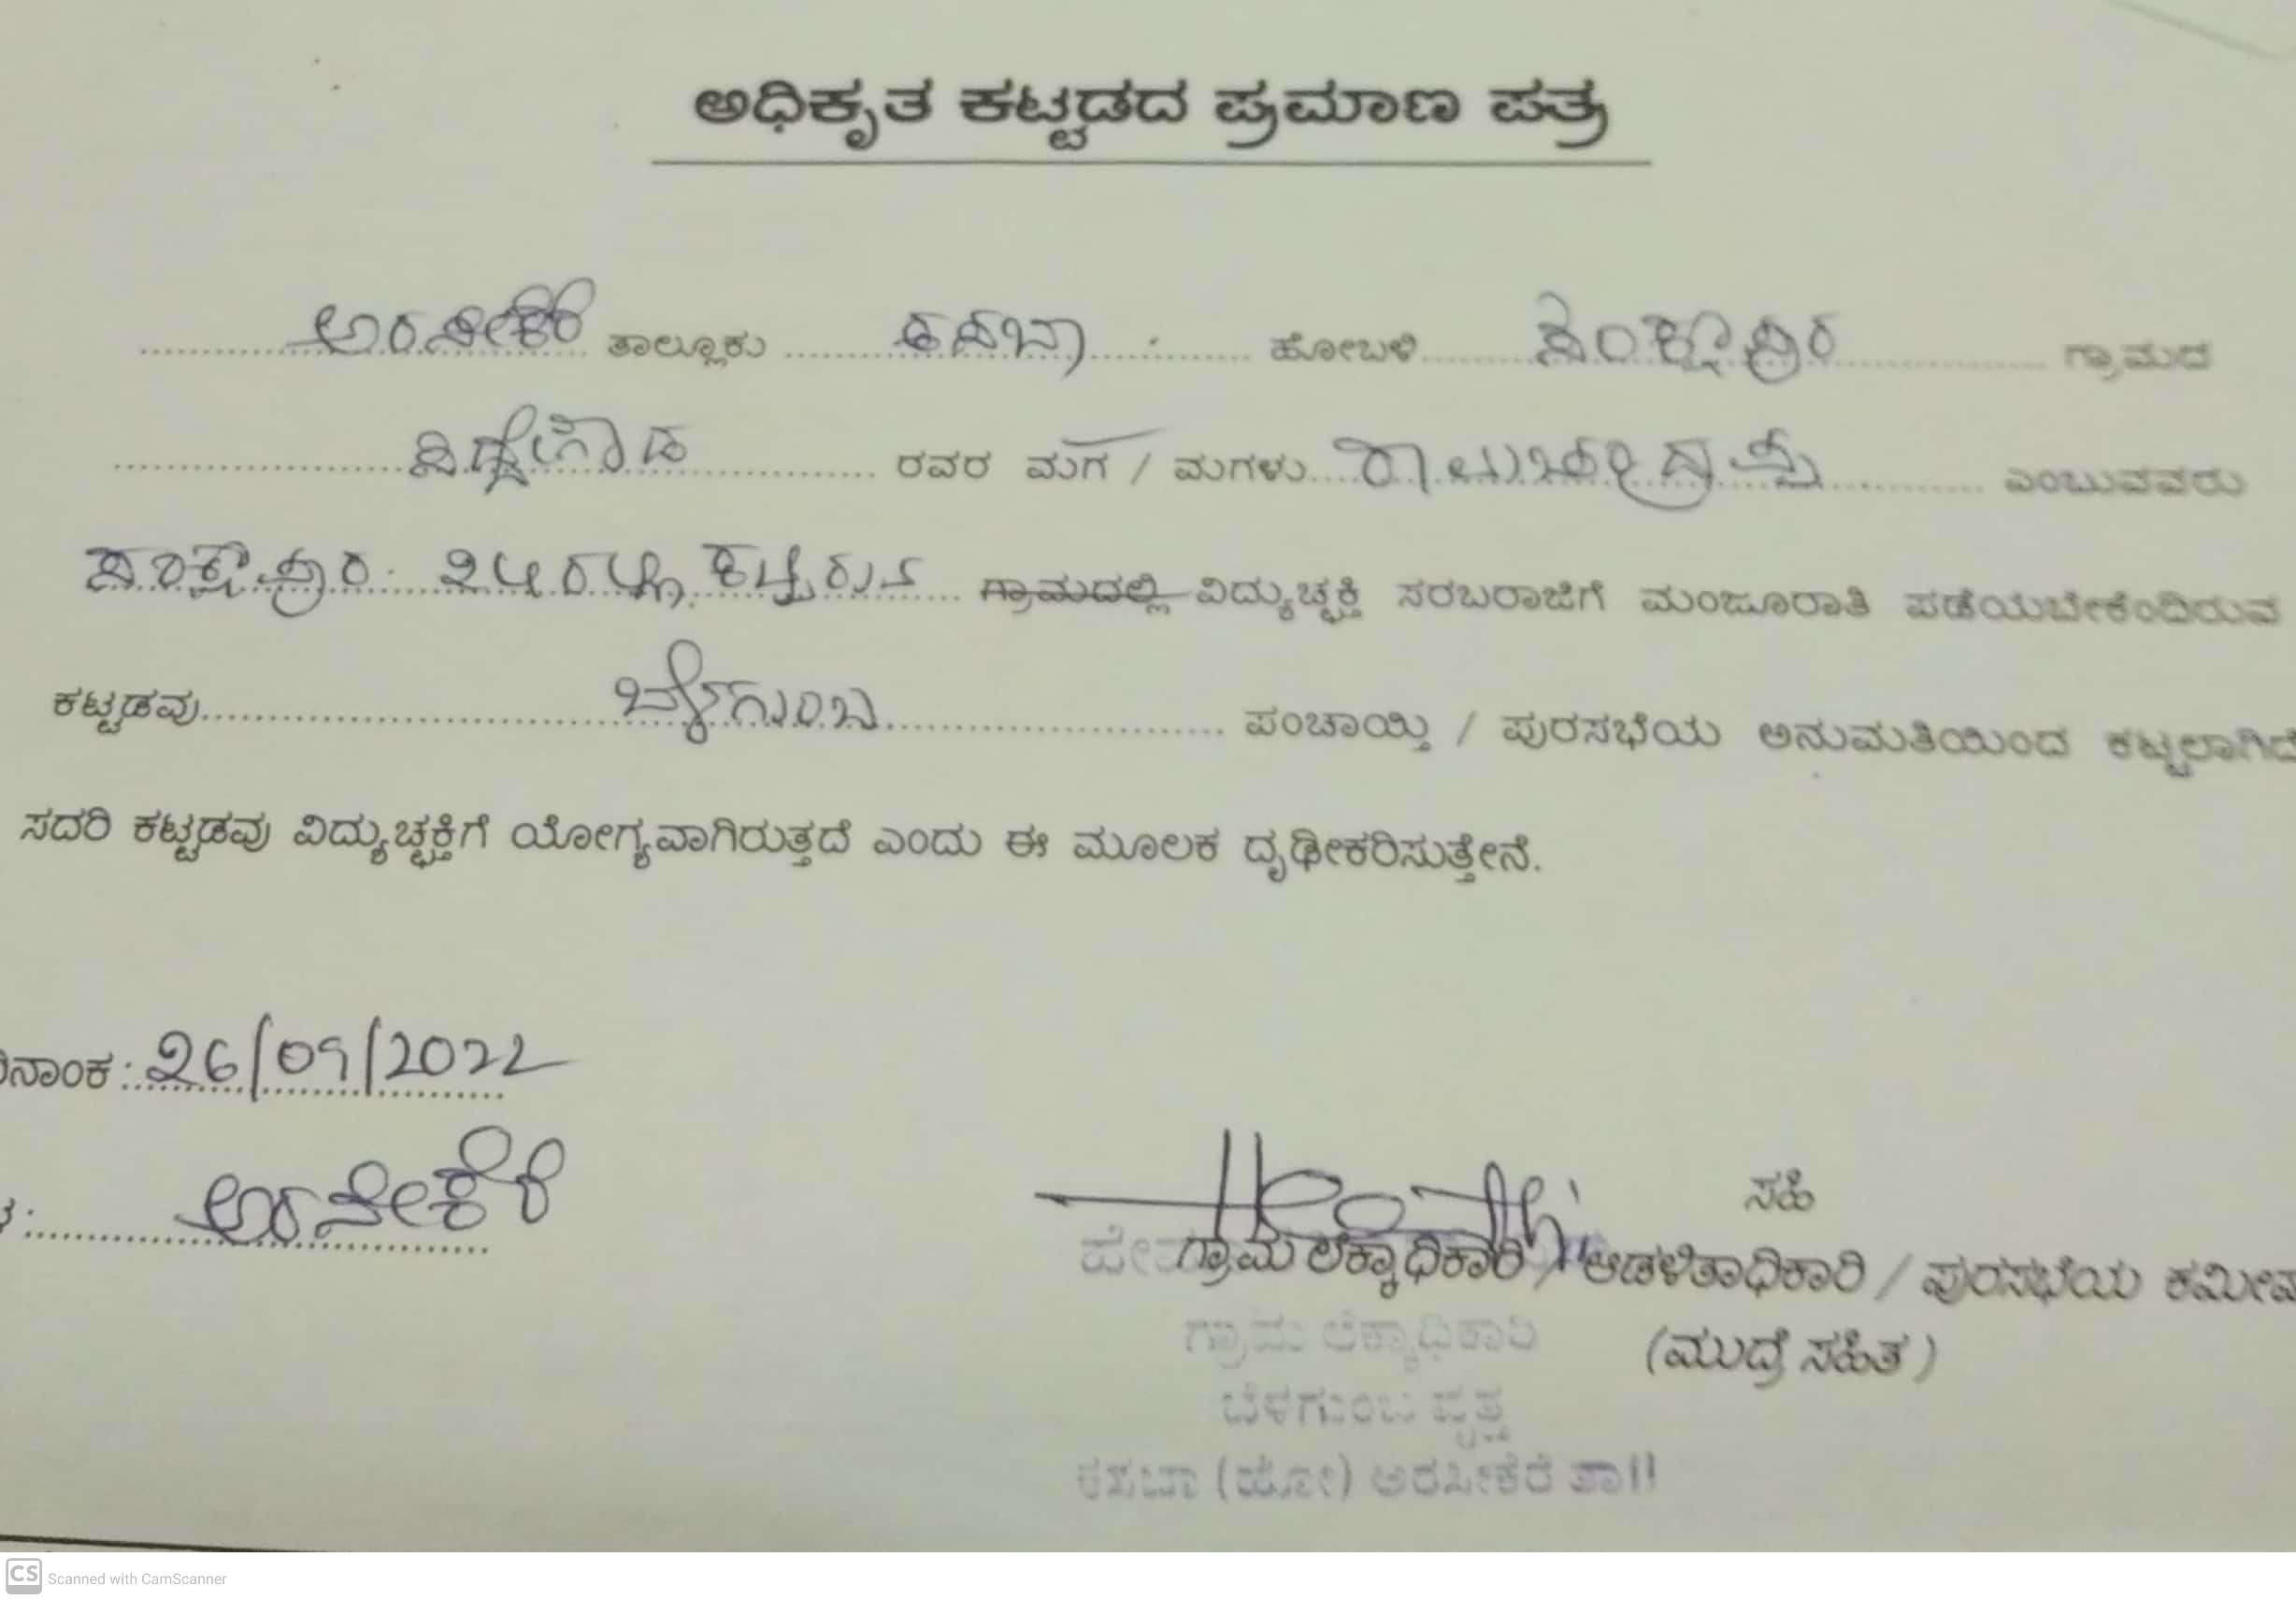 ಅಧಿಕೃತ ಕಟ್ಟಡದ ಪ್ರಮಾಣ ಪತ್ರ
ಅರಸೀಕೆರೆ ತಾಲ್ಲೂಕು ಕಸಬಾ ಹೋಬಳಿ ಗ್ರಾಮದ
ಸಿದ್ದೇಗೌಡ ರವರ ಮಗ / ಮಗಳು ರಾಮಚಂದ್ರಪ್ಪ ಎಂಬುವವರು
ಗ್ರಾಮದಲ್ಲಿ ವಿದ್ಯುಚ್ಛಕ್ತಿ ಸರಬರಾಜಿಗೆ ಮಂಜೂರಾತಿ ಪಡೆಯಬೇಕೆಂದಿರುವ
ಕಟ್ಟಡವು ಪಂಚಾಯ್ತಿ / ಪುರಸಭೆಯ ಅನುಮತಿಯಿಂದ ಕಟ್ಟಲಾಗಿದೆ
ಸದರಿ ಕಟ್ಟಡವು ವಿದ್ಯುಚ್ಛಕ್ತಿಗೆ ಯೋಗ್ಯವಾಗಿರುತ್ತದೆ ಎಂದು ಈ ಮೂಲಕ ದೃಢೀಕರಿಸುತ್ತೇನೆ.
ದಿನಾಂಕ : 26/09/2022
ಅರಸೀಕೆರೆ
ಸಹಿ
ಗ್ರಾಮ ಲೆಕ್ಕಾಧಿಕಾರಿ / ಆಡಳಿತಾಧಿಕಾರಿ / ಪುರಸಭೆಯ
(ಮುದ್ರೆ ಸಹಿತ)
ಗ್ರಾಮ ಲೆಕ್ಕಾಧಿಕಾರಿ
ಬೆಳಗುಂಬ ವೃತ್ತ
ಕಸಬಾ (ಹೋ) ಅರಸೀಕೆರೆ ತಾ||
CS Scanned with CamScanner